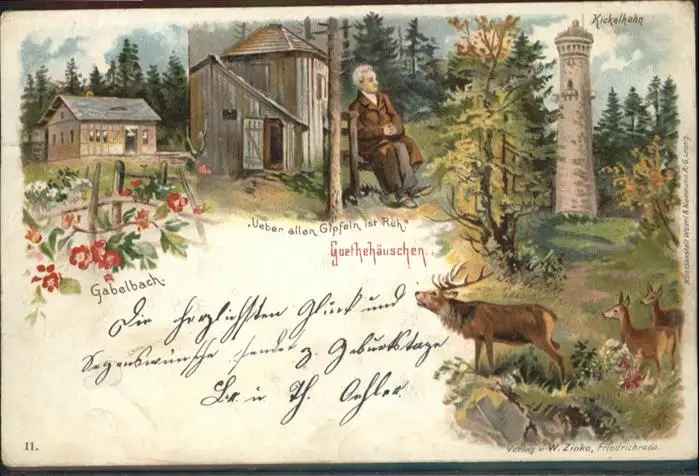 Kickelhahn
„Ueber allen Gipfeln ist Ruh."
Goethehäuschen.
Gabelbach.
Die herzlichsten Glück und
Segenswünsche sendet z. Geburtstage
Br. u. Th. Oehler.
11.
Verlag v. W. Zinke, Friedrichroda.
Kunstanstalt Wezel & Naumann A.G. Leipzig